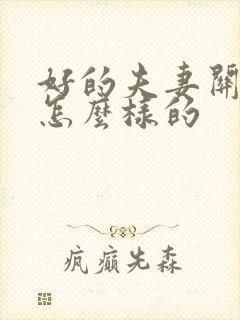 好的夫妻關
怎麼樣的
疯癫先森